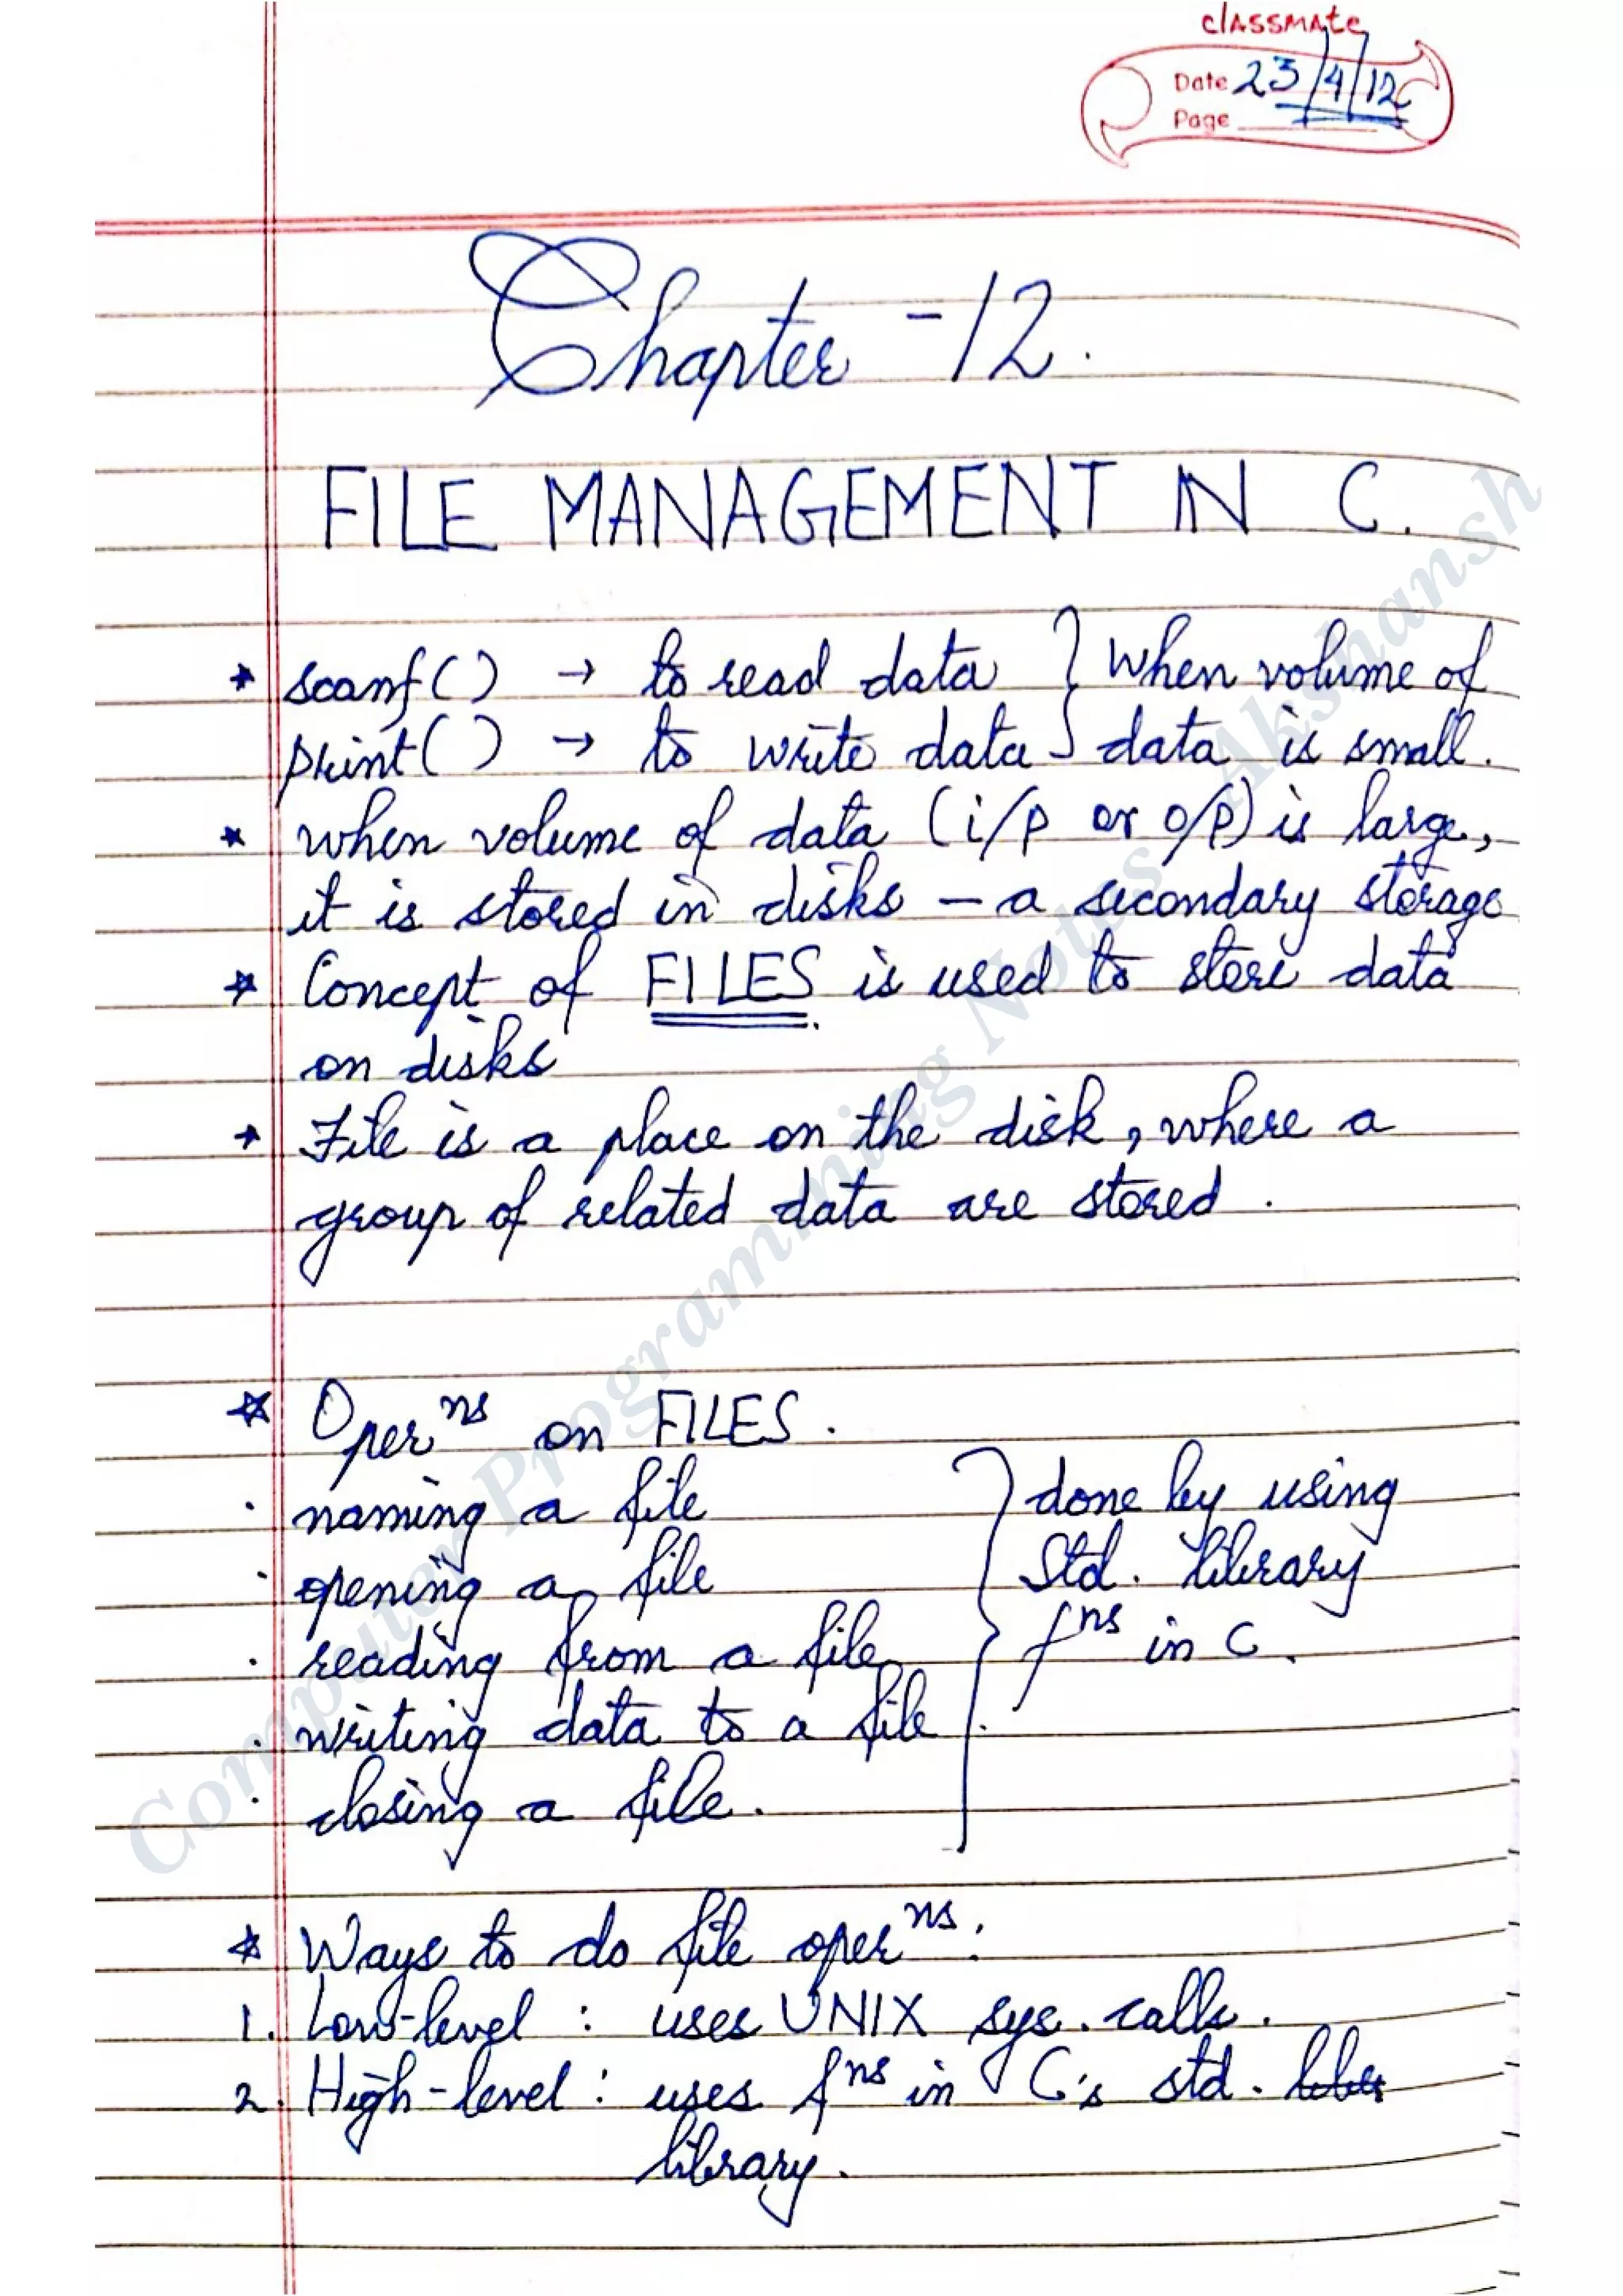 classmate
Date 23/4/12
Page
Chapter -12.
FILE MANAGEMENT IN C.
* scanf() → to read data } When volume of
print() → to write data } data is small.
* when volume of data (i/p or o/p) is large,
it is stored in disks – a secondary storage
* Concept of FILES is used to store data
on disks
* File is a place on the disk, where a
group of related data are stored.
* Oper ns on FILES.
· naming a file } done by using
· opening a file Std. library
· reading from a file f ns in C.
· writing data to a file.
· closing a file.
* Ways to do file oper ns:
1. Low-level : uses UNIX sys. calls.
2. High-level : uses f ns in C's std.
library.
Computer Programming Notes Akshansh